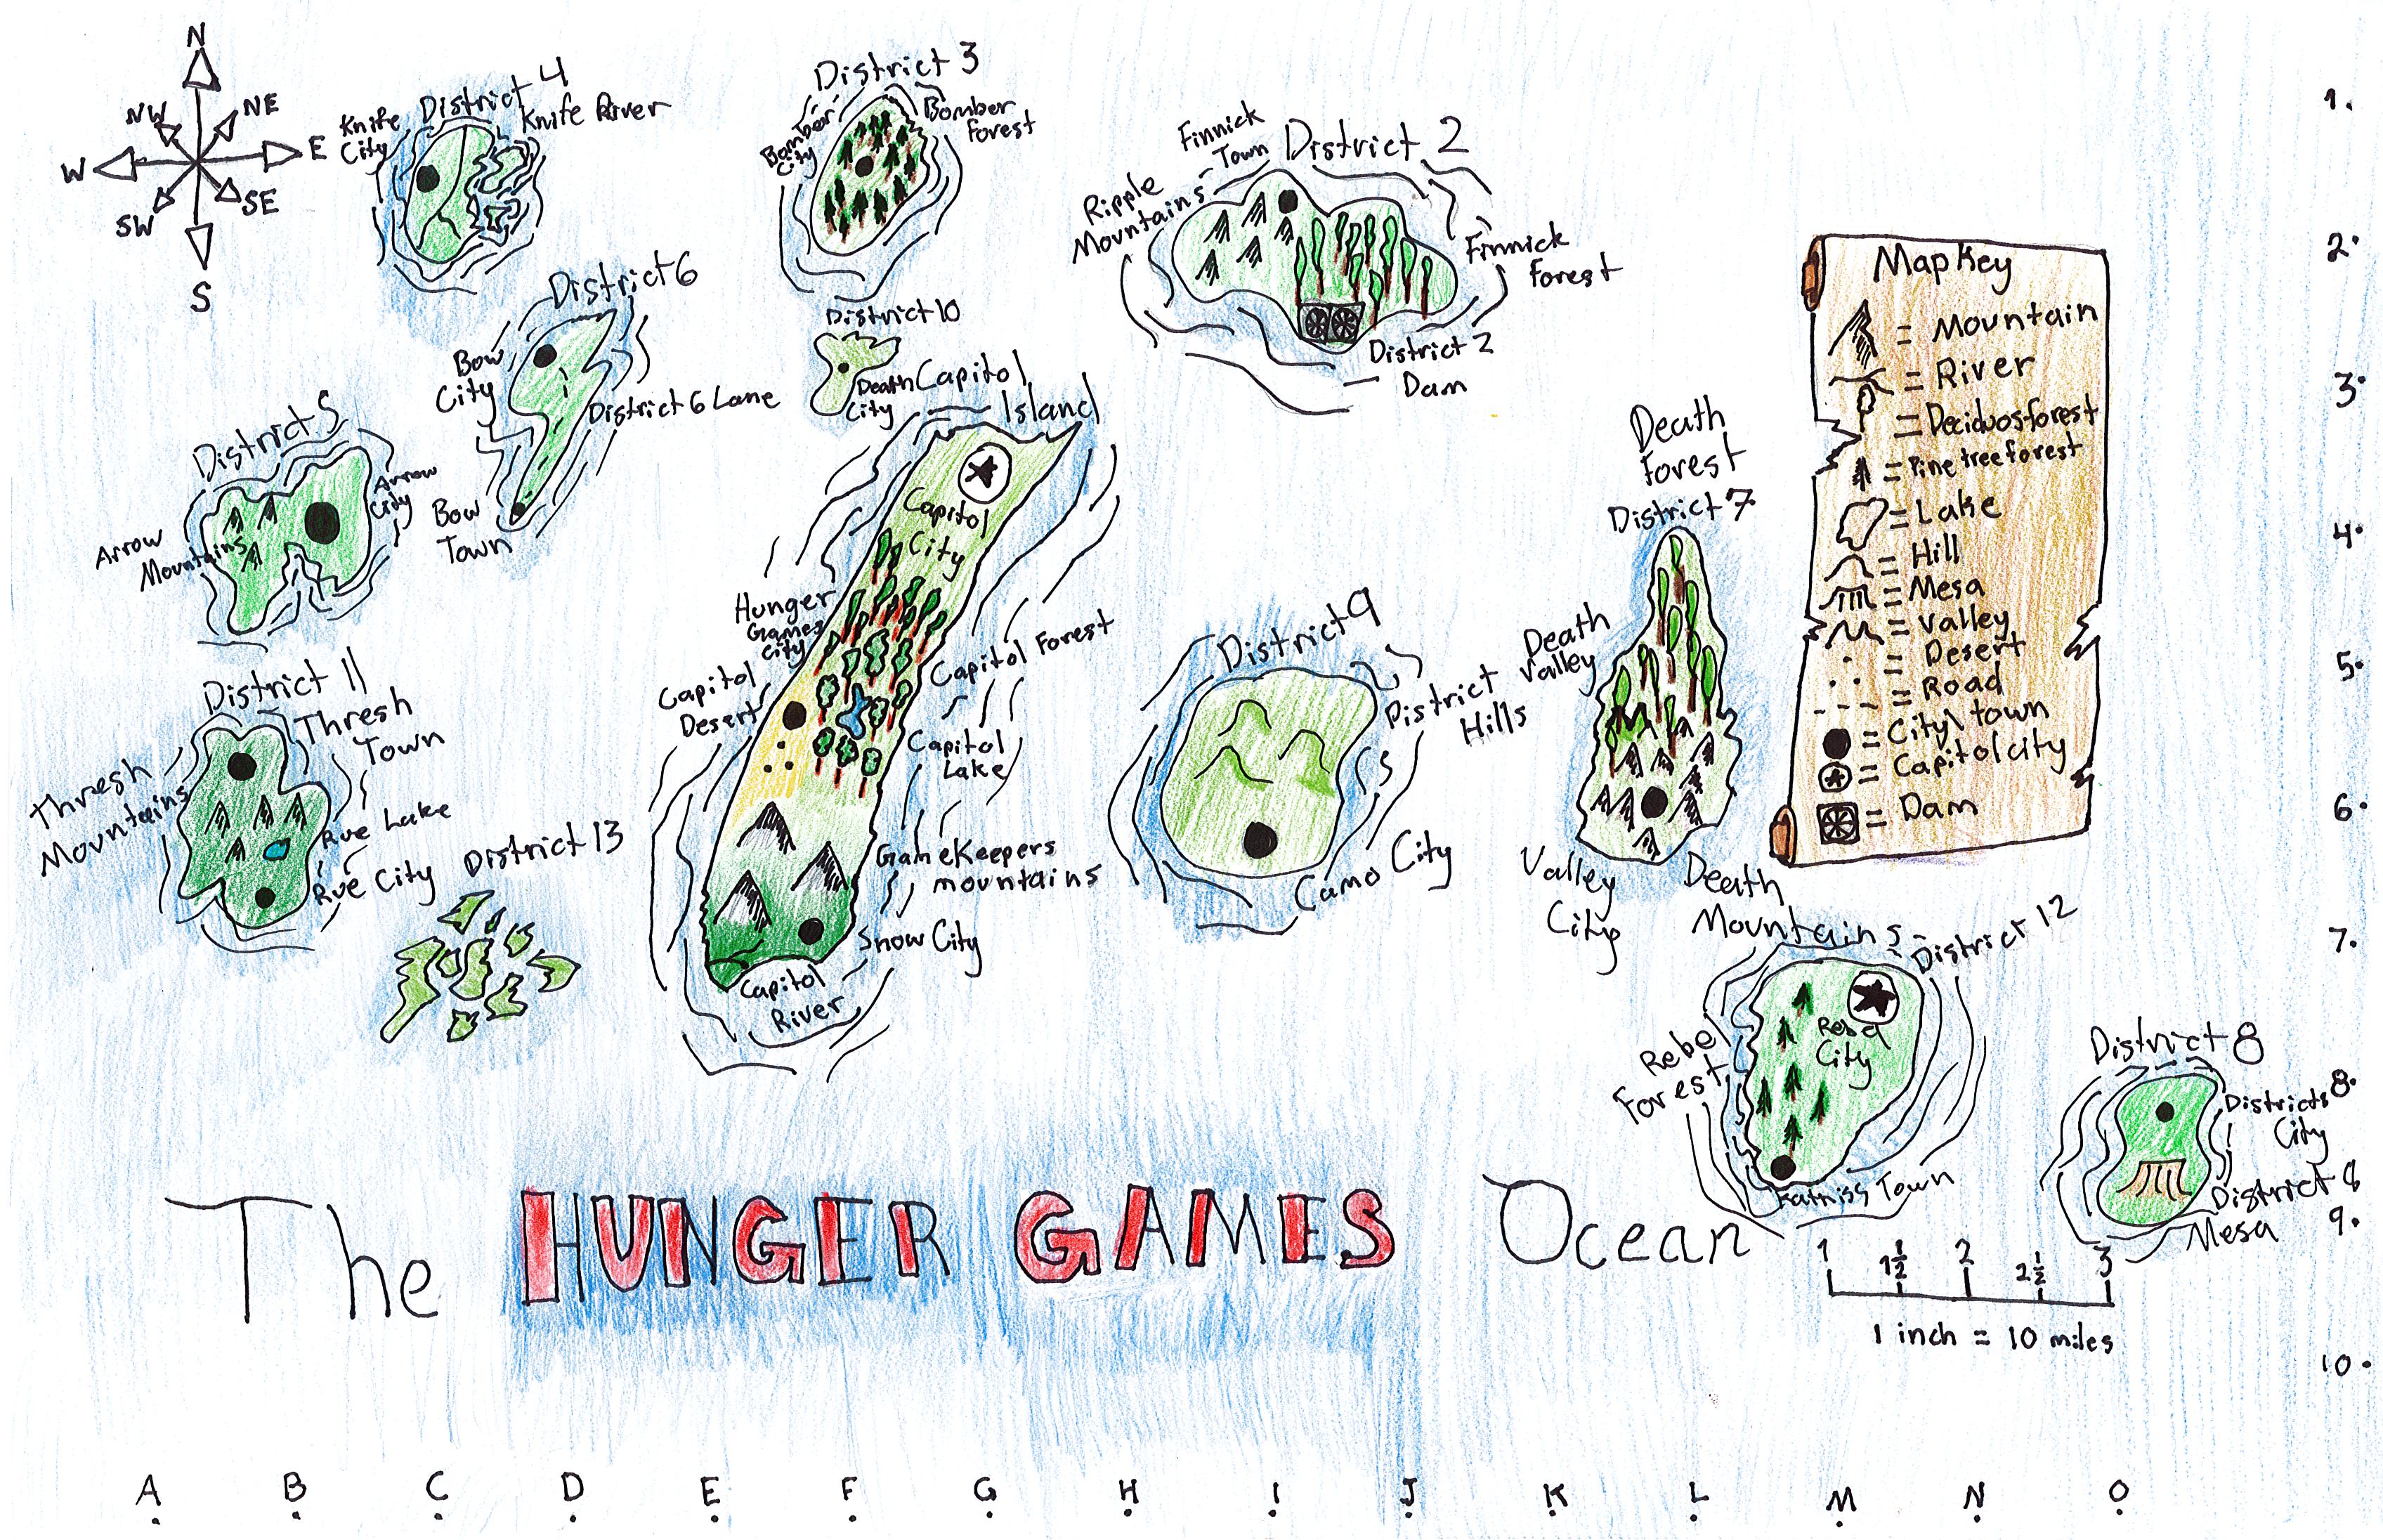 N
NW
NE
W
E
SW
SE
S
District 4
Knife
City
Knife River
District 3
Bomber
City
Bomber
Forest
Finnick
Town
District 2
Ripple
Mountains
Finnick
Forest
District 2
Dam
District 6
Bow
City
District 6 Lane
Bow
Town
District 10
Death
City
Capitol
Island
Capitol
City
Hunger
Games
City
Capitol Forest
Capitol
Desert
Capitol
Lake
GameKeepers
mountains
Snow City
Capitol
River
District 5
Arrow
City
Arrow
Mountains
District 11
Thresh
Town
Thresh
Mountains
Rue Lake
Rue City
District 13
District 9
District
Hills
Camo City
Death
Forest
District 7
Death
Valley
Valley
City
Death
Mountains
Map Key
= Mountain
= River
= Deciduosforest
= Pine tree forest
= Lake
= Hill
= Mesa
= Valley
= Desert
= Road
= City\town
= Capitol city
= Dam
District 12
Rebel
City
Rebel
Forest
Katniss Town
District 8
District 8
City
District 8
Mesa
The HUNGER GAMES Ocean
1 1 1/2 2 2 1/2 3
1 inch = 10 miles
1.
2.
3.
4.
5.
6.
7.
8.
9.
10.
A B C D E F G H I J K L M N O